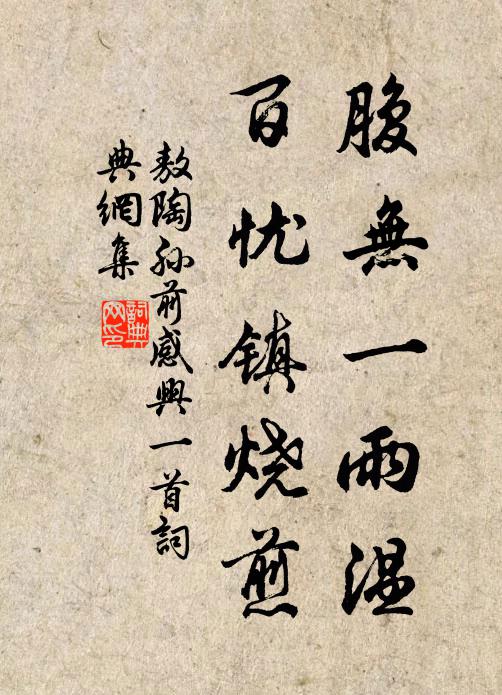 腹無一雨温
百忧镇烧煎
敖陶孙前感興一首詞
典網集
詞典网印